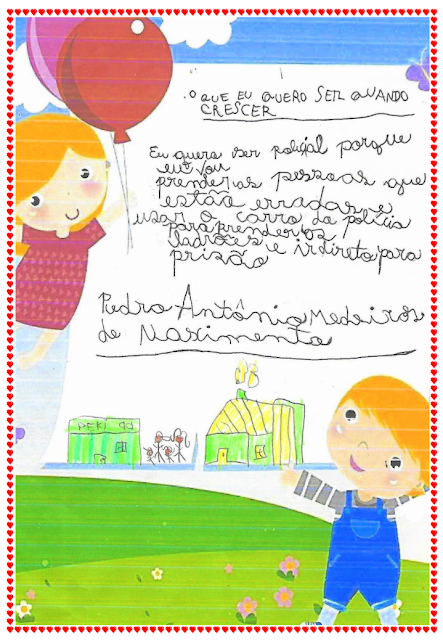 O QUE EU QUERO SER QUANDO
CRESCER
Eu quero ser policial porque
eu vou
prender as pessoas que
estão erradas e
usar o carro da polícia
para prender os
ladrões e ir direto para
prisão
Pedro Antônio Medeiros
de Nascimento